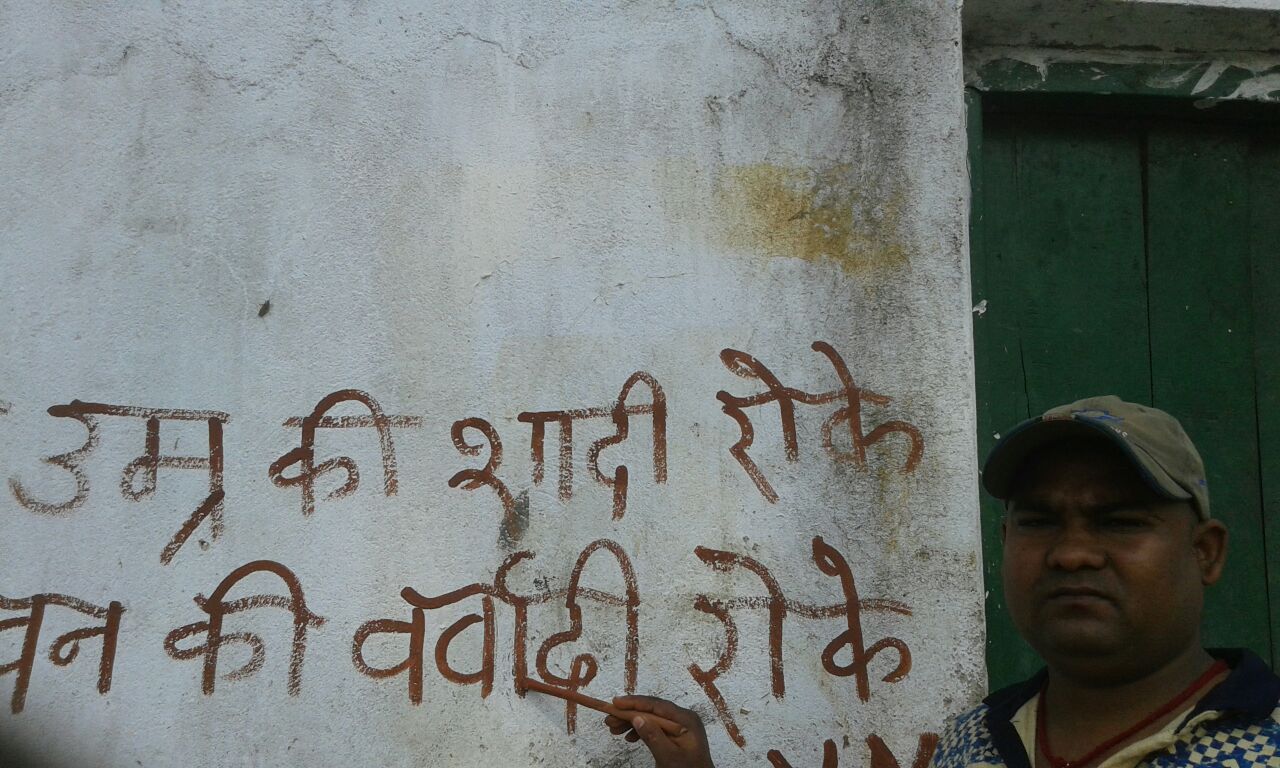 उम्र की शादी रोके
वन की वर्वादी रोके